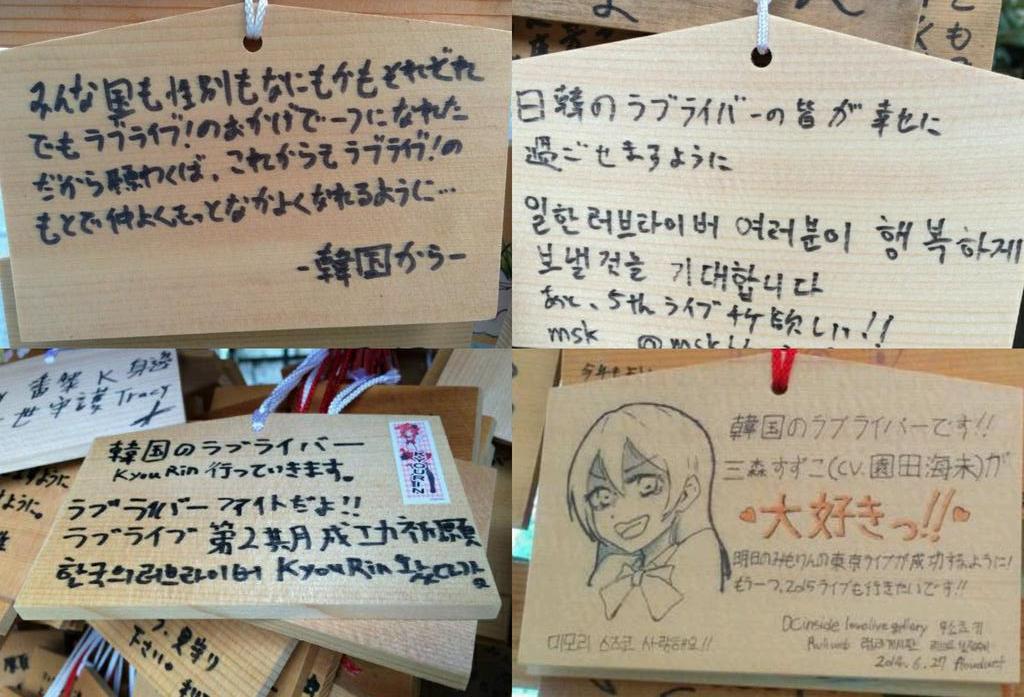 みんな国も性別もなにもかもそれぞれ
でもラブライブ!のおかげで一つになれた
だから願わくば、これからもラブライブ!の
もとで仲よくもっとなかよくなれるように…
-韓国から-
日韓のラブライバーの皆が幸せに
過ごせますように
일한 러브라이버 여러분이 행복하게
보낼것을 기대합니다
あと、5thライブチケ欲しい!!
msk @msk
番禁 K 身邊
世守護 Tracy
韓国のラブライバー
KyouRin 行っていきます。
KYOURIN
ラブライバーファイトだよ!!
ラブライブ 第2期成功祈願
한국의 러브라이버 KyouRin 왔다감
見守り
下さい。
韓国のラブライバーです!!
三森すずこ(CV.園田海未)が
大好きっ!!
明日のみもりんの東京ライブが成功するように!
もう一つ、2015ライブも行きたいです!!
미모리 스즈코 사랑해요!!
DCinside lovelive gallery
Ruliweb
2014.6.27